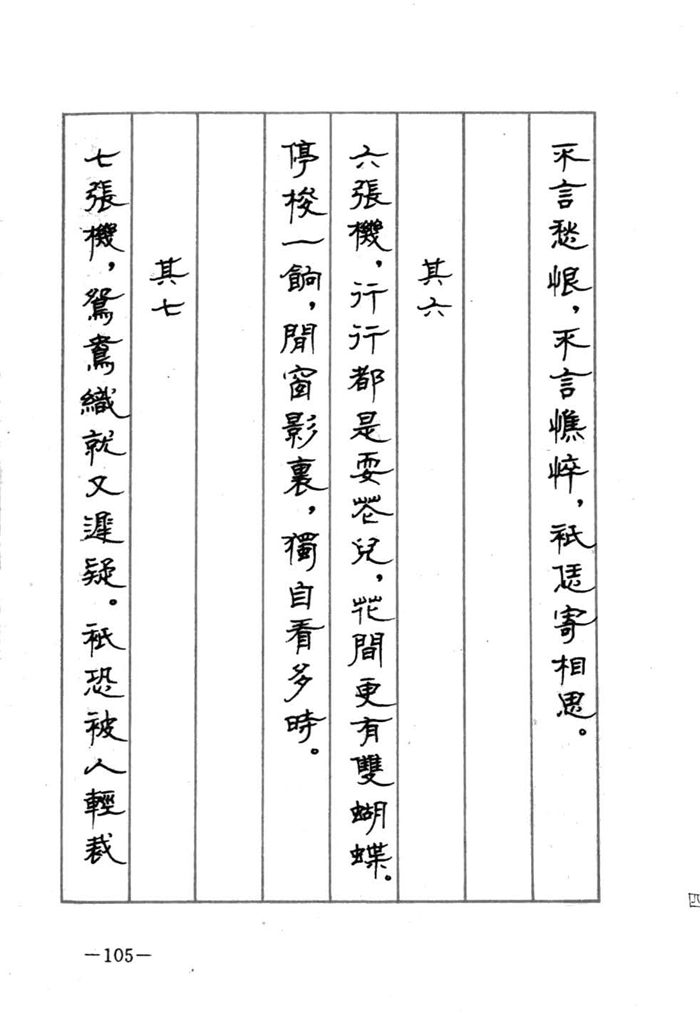 不言愁恨，不言憔悴，祇恁寄相思。
其六
六張機，行行都是耍花兒，花間更有雙蝴蝶。
停梭一餉，閒窗影裏，獨自看多時。
其七
七張機，鴛鴦織就又遲疑。祇恐被人輕裁
—105—
四